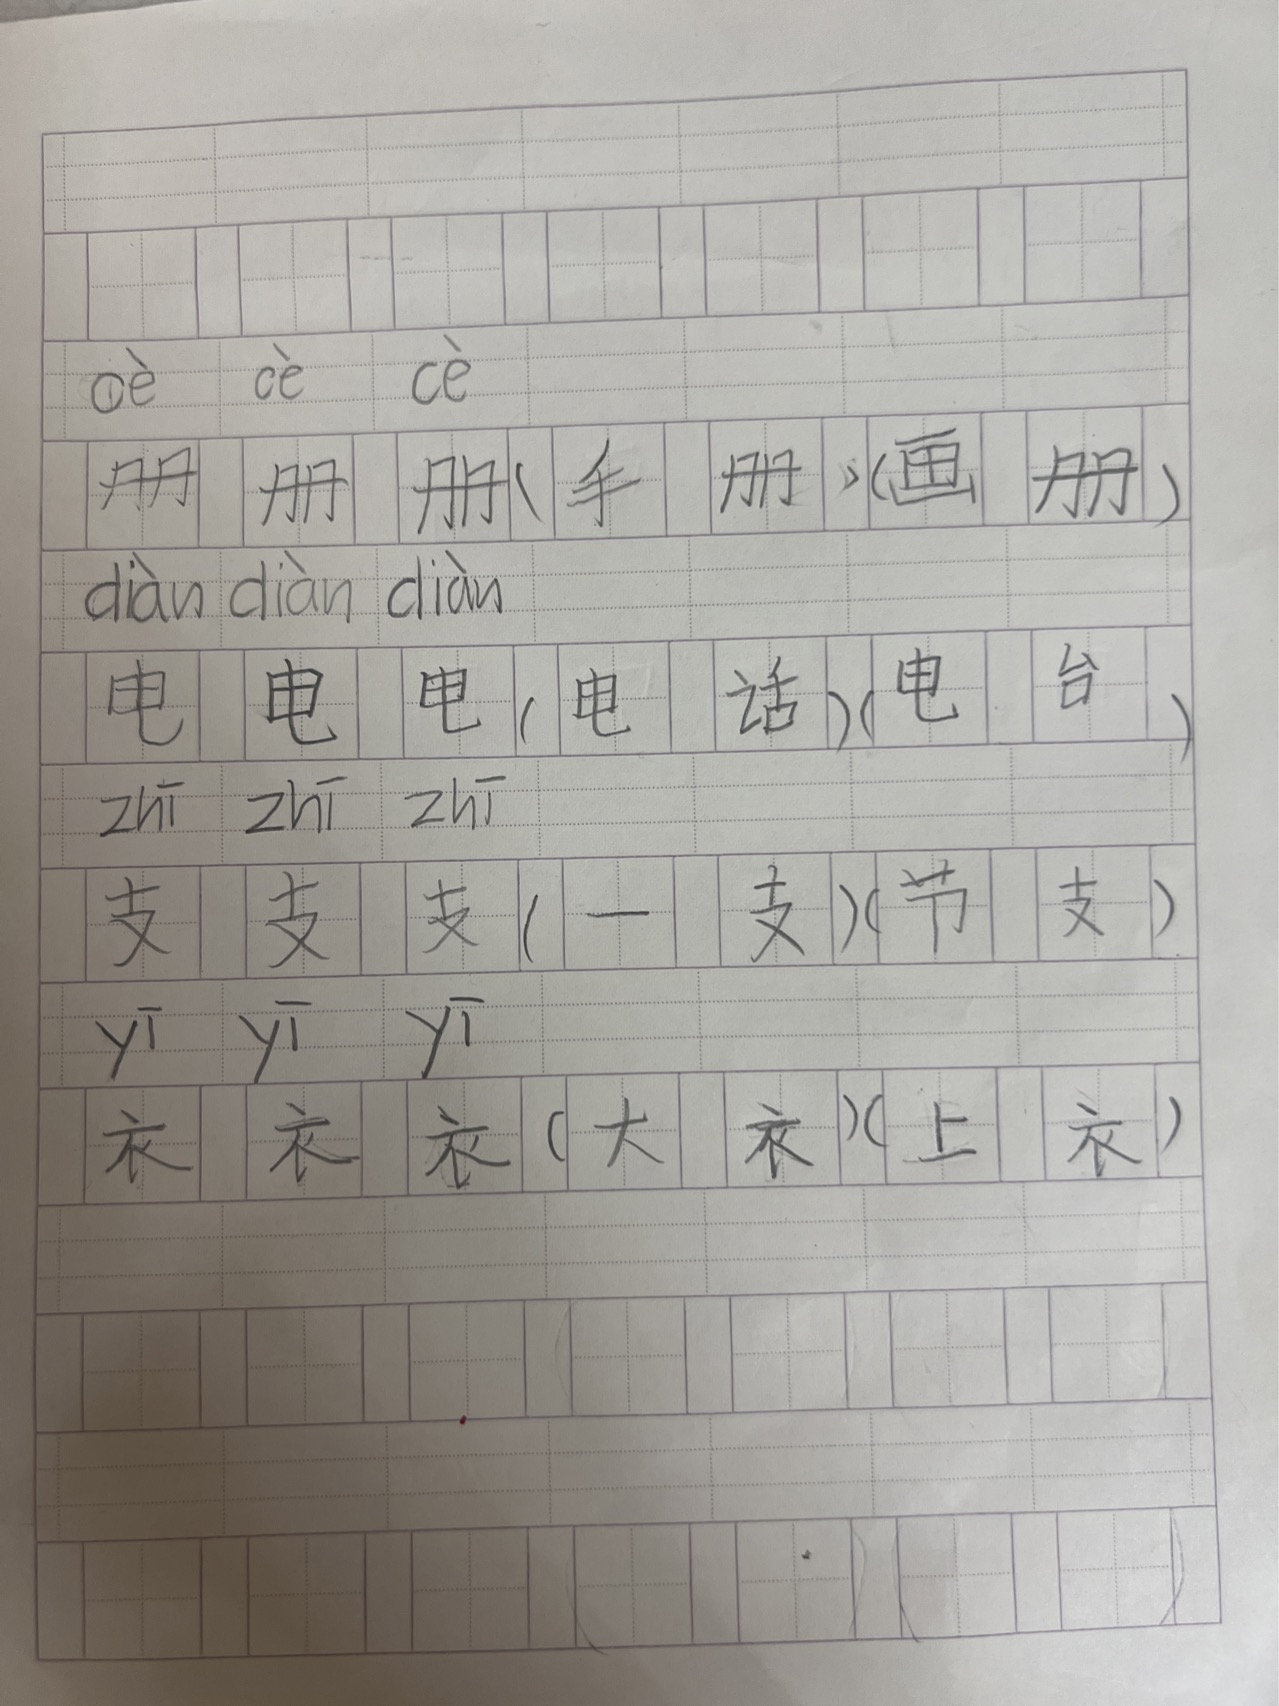 cè cè cè
册 册 册(手册)(画册)
diàn diàn diàn
电 电 电(电话)(电台)
zhī zhī zhī
支 支 支(一支)(节支)
yī yī yī
衣 衣 衣(大衣)(上衣)